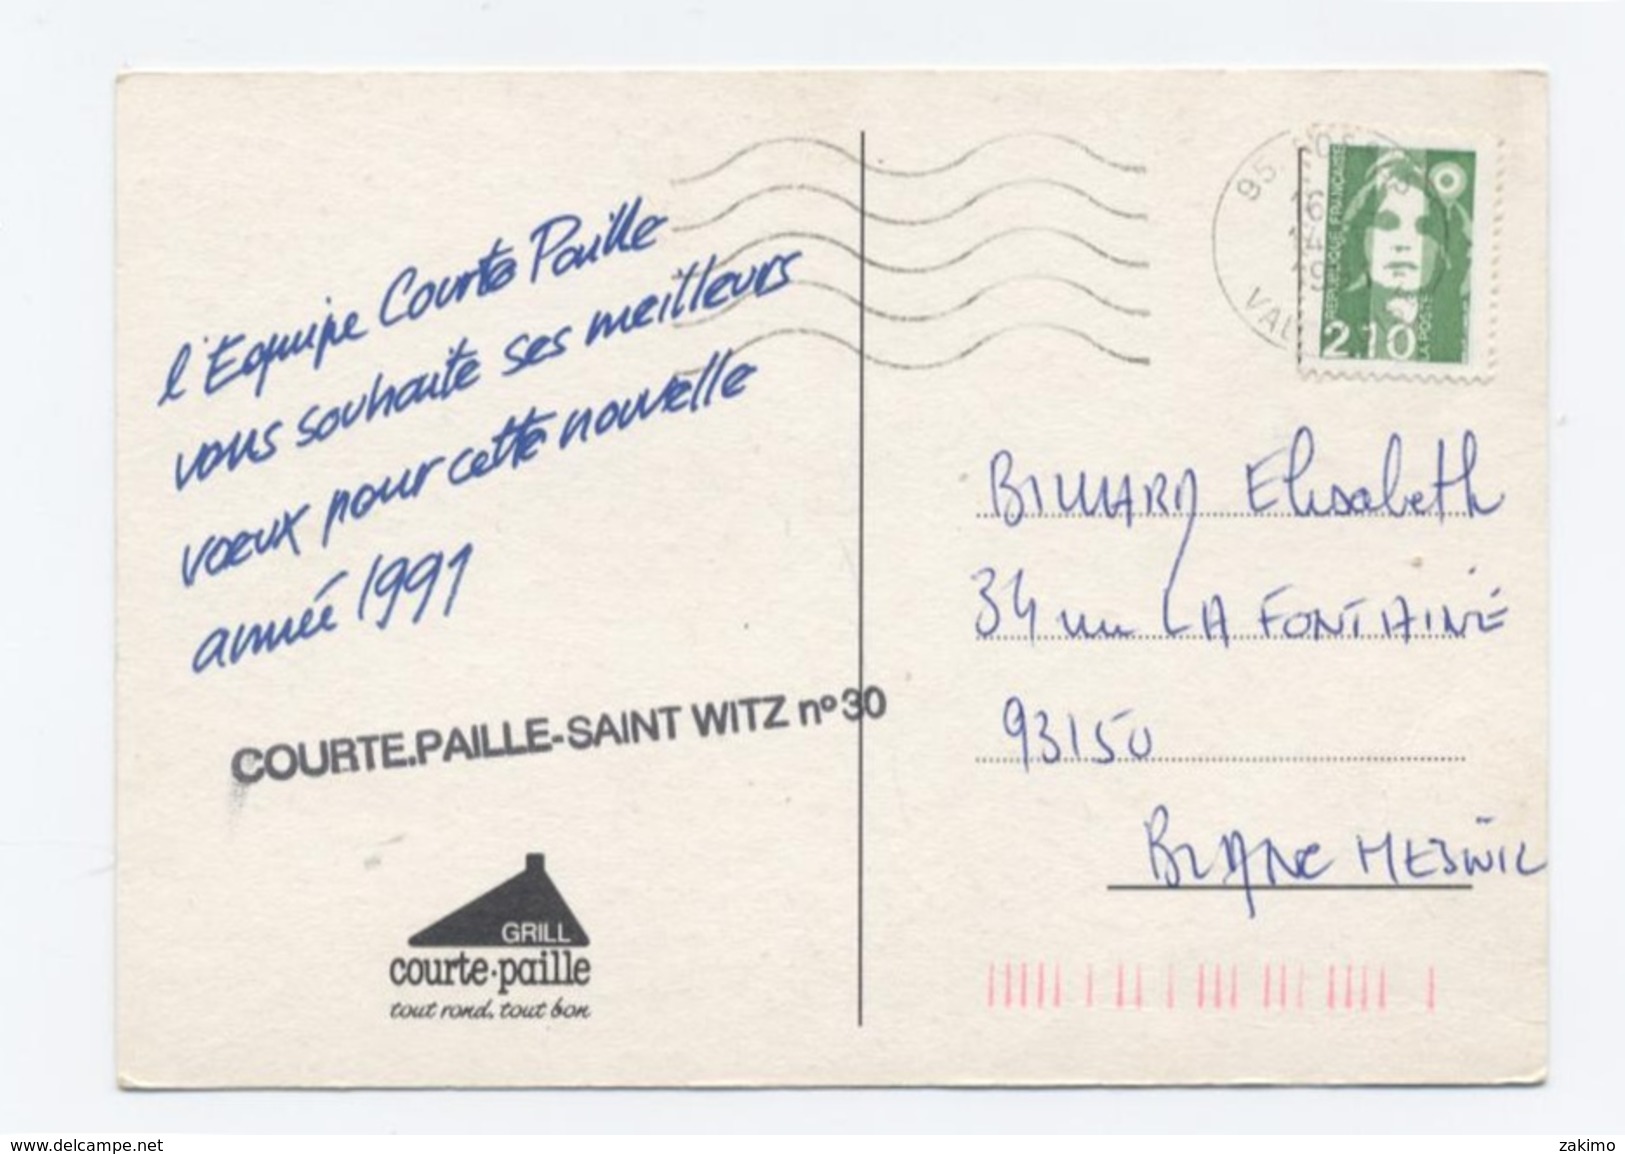 l'Equipe Courte Paille
vous souhaite ses meilleurs
voeux pour cette nouvelle
année 1991
COURTE.PAILLE-SAINT WITZ nº 30
GRILL
courte·paille
tout rond, tout bon
95
VAL
REPUBLIQUE FRANÇAISE
LA POSTE
2,10
BILLARD Elisabeth
34 rue LA FONTAINE
93150
BLANC MESNIL
www.delcampe.net
zakimo